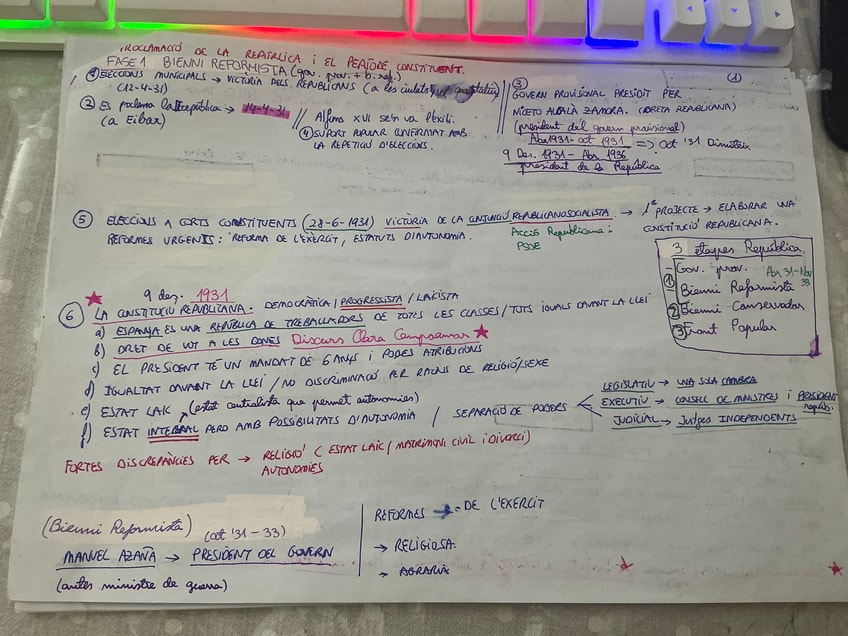 PROCLAMACIÓ DE LA REPÚBLICA i EL PERÍODE CONSTITUENT.
FASE 1 BIENNI REFORMISTA (gov. prov. + b. ref.)
① ELECCIONS MUNICIPALS → VICTÒRIA DELS REPUBLICANS (a les ciutats
(12-4-31)
② Es proclama la II república → 14-4-31
(a Eibar)
Alfons XIII se'n va l'exili.
④ SUPORT POPULAR CONFIRMAT AMB
LA REPETICIÓ D'ELECCIONS.
③ (1)
GOVERN PROVISIONAL PRESIDIT PER
NICETO ALCALÀ ZAMORA. (DRETA REPUBLICANA)
(president del govern provisional)
Abr 1931 - oct 1931 => Oct '31 Dimiteix
9 Des. 1931 - Abr 1936
president de la República
⑤ ELECCIONS A CORTS CONSTITUENTS (28-6-1931) VICTÒRIA DE LA CONJUNCIÓ REPUBLICANOSOCIALISTA → 1r PROJECTE → ELABORAR UNA
CONSTITUCIÓ REPUBLICANA.
REFORMES URGENTS: REFORMA DE L'EXÈRCIT, ESTATUTS D'AUTONOMIA.
Acció Republicana i
PSOE
3 etapes República
- Gov. prov. Abr 31 - Nov 33
① - Bienni Reformista
② - Bienni Conservador
③ - Front Popular
9 des. 1931
⑥ LA CONSTITUCIÓ REPUBLICANA. DEMOCRÀTICA / PROGRESSISTA / LAICISTA
a) ESPANYA ÉS UNA REPÚBLICA DE TREBALLADORS DE TOTES LES CLASSES / TOTS IGUALS DAVANT LA LLEI
b) DRET DE VOT A LES DONES Discurs Clara Campoamor
c) EL PRESIDENT TÉ UN MANDAT DE 6 ANYS i POQUES ATRIBUCIONS
d) IGUALTAT DAVANT LA LLEI / NO DISCRIMINACIÓ PER RAONS DE RELIGIÓ / SEXE
e) ESTAT LAIC (estat centralista que permet autonomies)
f) ESTAT INTEGRAL PERÒ AMB POSSIBILITATS D'AUTONOMIA / SEPARACIÓ DE PODERS
LEGISLATIU → UNA SOLA CAMBRA
EXECUTIU → CONSELL DE MINISTRES i PRESIDENT repúb.
JUDICIAL → Jutges INDEPENDENTS
FORTES DISCREPÀNCIES PER → RELIGIÓ (ESTAT LAIC / MATRIMONI CIVIL i DIVORCI)
AUTONOMIES
(Bienni Reformista) (oct '31 - 33)
MANUEL AZAÑA → PRESIDENT DEL GOVERN
(antes ministre de guerra)
REFORMES → DE L'EXÈRCIT
→ RELIGIOSA.
→ AGRÀRIA